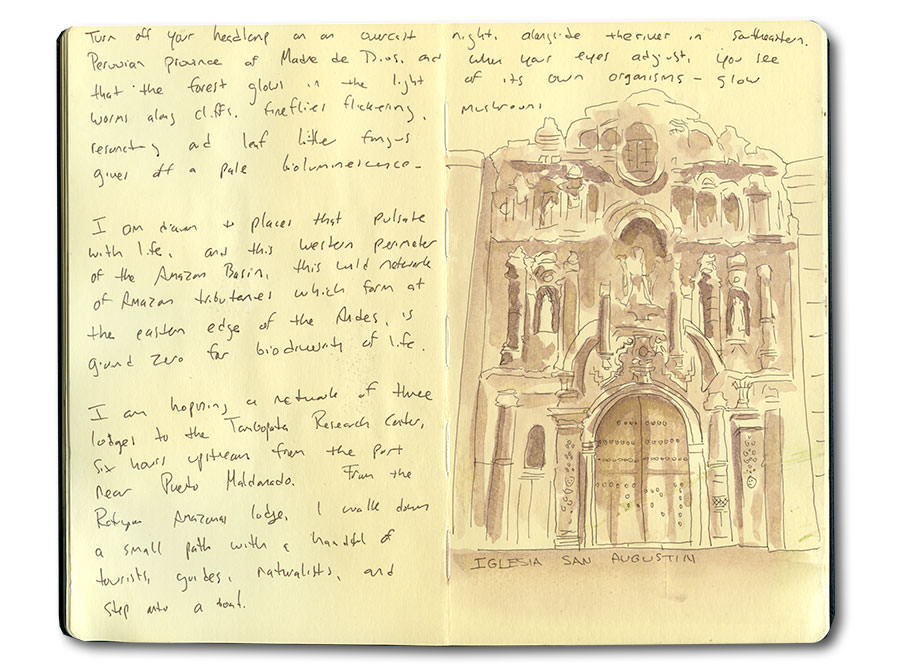 Turn off your headlamp on an overcast night, alongside the river in southeastern.
Peruvian province of Madre de Dios, and when your eyes adjust, you see
that the forest glows in the light of its own organisms – glow
worms along cliffs, fireflies flickering, mushrooms
resonating and leaf litter fungus
gives off a pale bioluminescence –
I am drawn to places that pulsate
with life, and this western perimeter
of the Amazon Basin, this wild network
of Amazon tributaries which form at
the eastern edge of the Andes, is
ground zero for biodiversity of life.
I am hopping a network of three
lodges to the Tambopata Research Center,
six hours upstream from the port
near Puerto Maldonado. From the
Refugio Amazonas lodge, I walk down
a small path with a handful of
tourists, guides, naturalists, and
step into a boat.
IGLESIA SAN AUGUSTIN